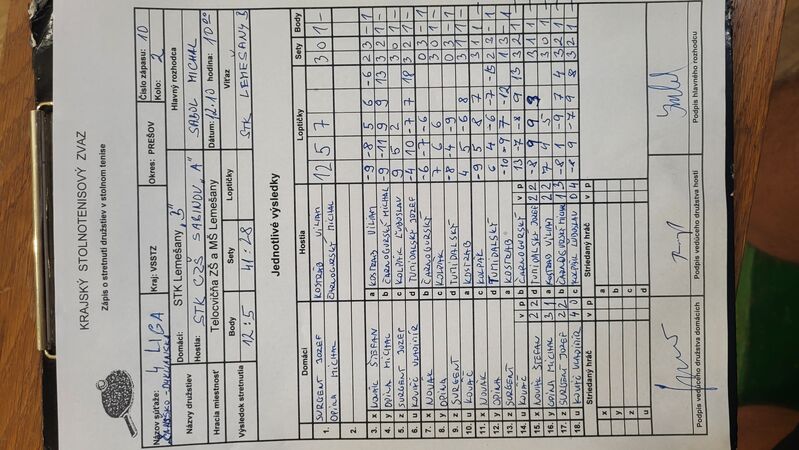 KRAJSKÝ STOLNOTENISOVÝ ZVÄZ
Zápis o stretnutí družstiev v stolnom tenise
Názov súťaže: 4 LIGA
Kraj: VSSTZ
Okres: PREŠOV
Číslo zápasu: 10
Kolo: 2
Názvy družstiev
Domáci: STK Lemešany „B"
Hostia: STK CZŠ SABINOV „A"
Hlavný rozhodca
SABOL MICHAL
Hracia miestnosť Telocvičňa ZŠ a MŠ Lemešany
Dátum: 12.10 hodina: 10 00
Výsledok stretnutia
Body Sety Loptičky Víťaz
12:5 41:28 STK LEMEŠANY B
Jednotlivé výsledky
Domáci Hostia Loptičky Sety Body
1. SURGENT JOZEF KOSTRAB VILIAM 12 5 7 3 0 1 -
OPINA MICHAL ČARNOGURSKÝ MICHAL
2.
3. x NOVÁK ŠTEFAN a KOSTRAB VILIAM -9 -8 5 6 -6 2 3 - 1
4. y OPINA MICHAL b ČARNOGURSKÝ MICHAL -9 -11 9 9 13 3 2 1 -
5. z SURGENT JOZEF c 9 5 2 3 0 1 -
6. u KOVÁČ VLADIMÍR d JOZEF -4 10 -7 7 18 3 2 1 -
7. x NOVÁK b ČARNOGURSKÝ -6 -7 -6 0 3 - 1
8. y OPINA c 7 6 6 3 0 1 -
9. z SURGENT d -8 -4 -9 0 3 - 1
10. u KOVÁČ a KOSTRAB 4 5 -6 8 3 1 1 -
11. x NOVÁK c -9 5 8 7 3 1 1 -
12. y OPINA d 6 4 -6 -7 -15 2 3 - 1
13. z SURGENT a KOSTRAB -10 -9 7 -12 1 3 - 1
14. u KOVÁČ b ČARNOGURSKÝ 13 -7 -8 9 13 3 2 1 -
v p v p
15. x NOVÁK ŠTEFAN 2 2 d JOZEF 2 2 -8 9 9 9 3 1 1
16. y OPINA MICHAL 3 1 a KOSTRAB VILIAM 2 2 7 4 5 3 0 1
17. z SURGENT JOZEF 2 2 b 1 3 -8 1 -9 7 4 3 2 1
18. u KOVÁČ VLADIMÍR 4 0 c 0 4 -8 9 -7 9 8 3 2 1
Striedaný hráč v p Striedaný hráč v p
x a
y b
z c
u d
Podpis vedúceho družstva domácich
Podpis vedúceho družstva hostí
Podpis hlavného rozhodcu